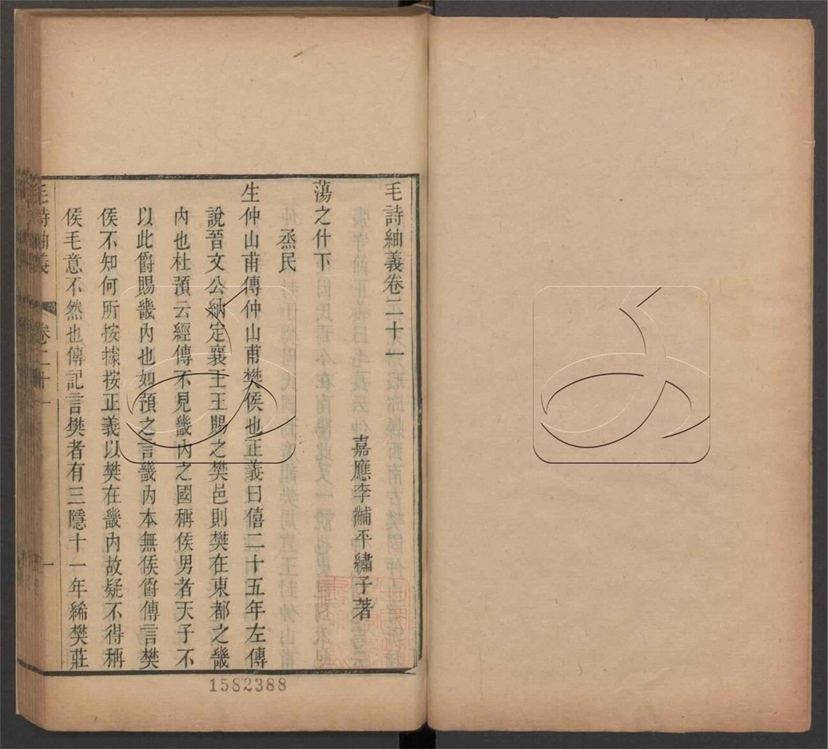 毛詩紬義卷二十一
嘉應李黼平繡子著
蕩之什下
烝民
生仲山甫傳仲山甫樊侯也正義曰僖二十五年左傳
說晉文公納定襄王王賜之樊邑則樊在東都之畿
內也杜預云經傳不見畿內之國稱侯男者天子不
以此爵賜畿內也如預之言畿內本無侯爵傳言樊
侯不知何所按據按正義以樊在畿內故疑不得稱
侯毛意不然也傳記言樊者有三隱十一年絺樊莊
毛詩紬義
卷二十一
一
1582388